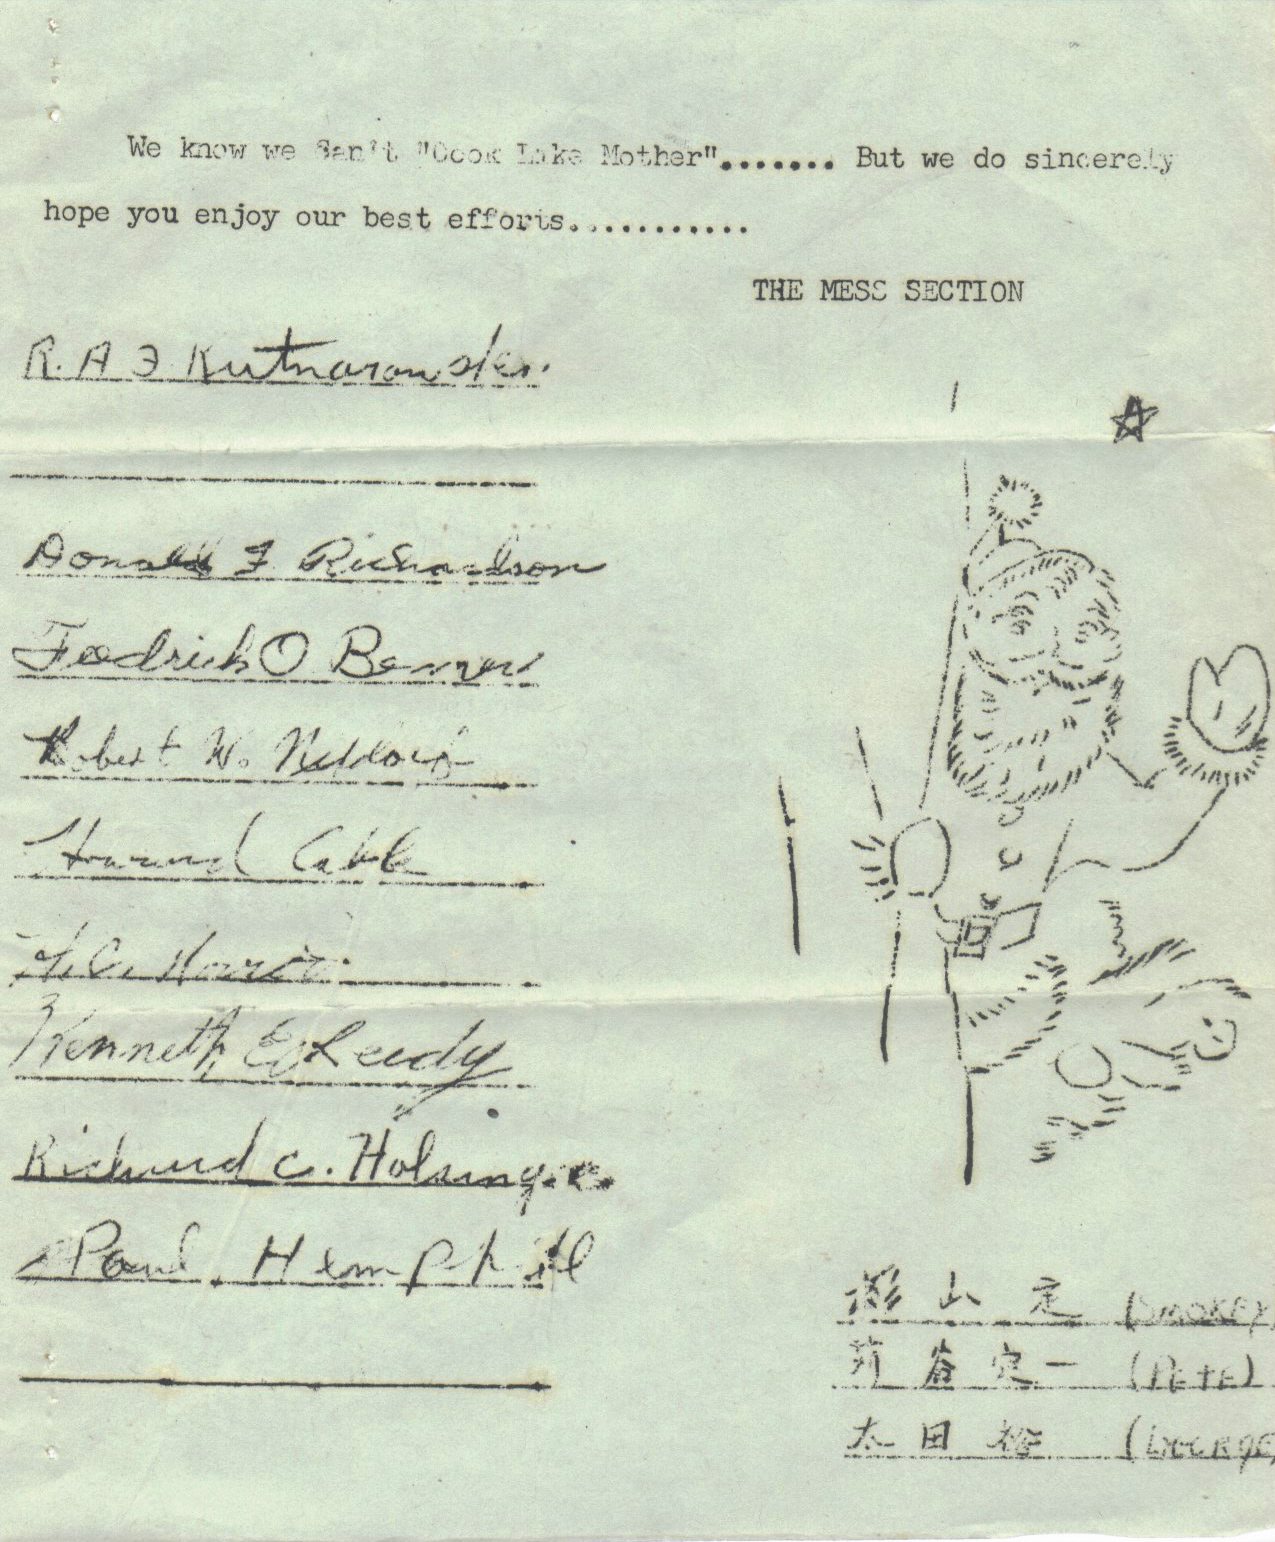 We know we Can't "Cook Like Mother"....... But we do sincerely
hope you enjoy our best efforts............
THE MESS SECTION
R. A J
Donald F Richardson
O
Robert W.
Howard Cable
Harris
Kenneth E Leedy
Richard C. Holsinger
Paul Hemphill
影山定 (SMOKEY)
定一 (PETE)
太田 (GEORGE)